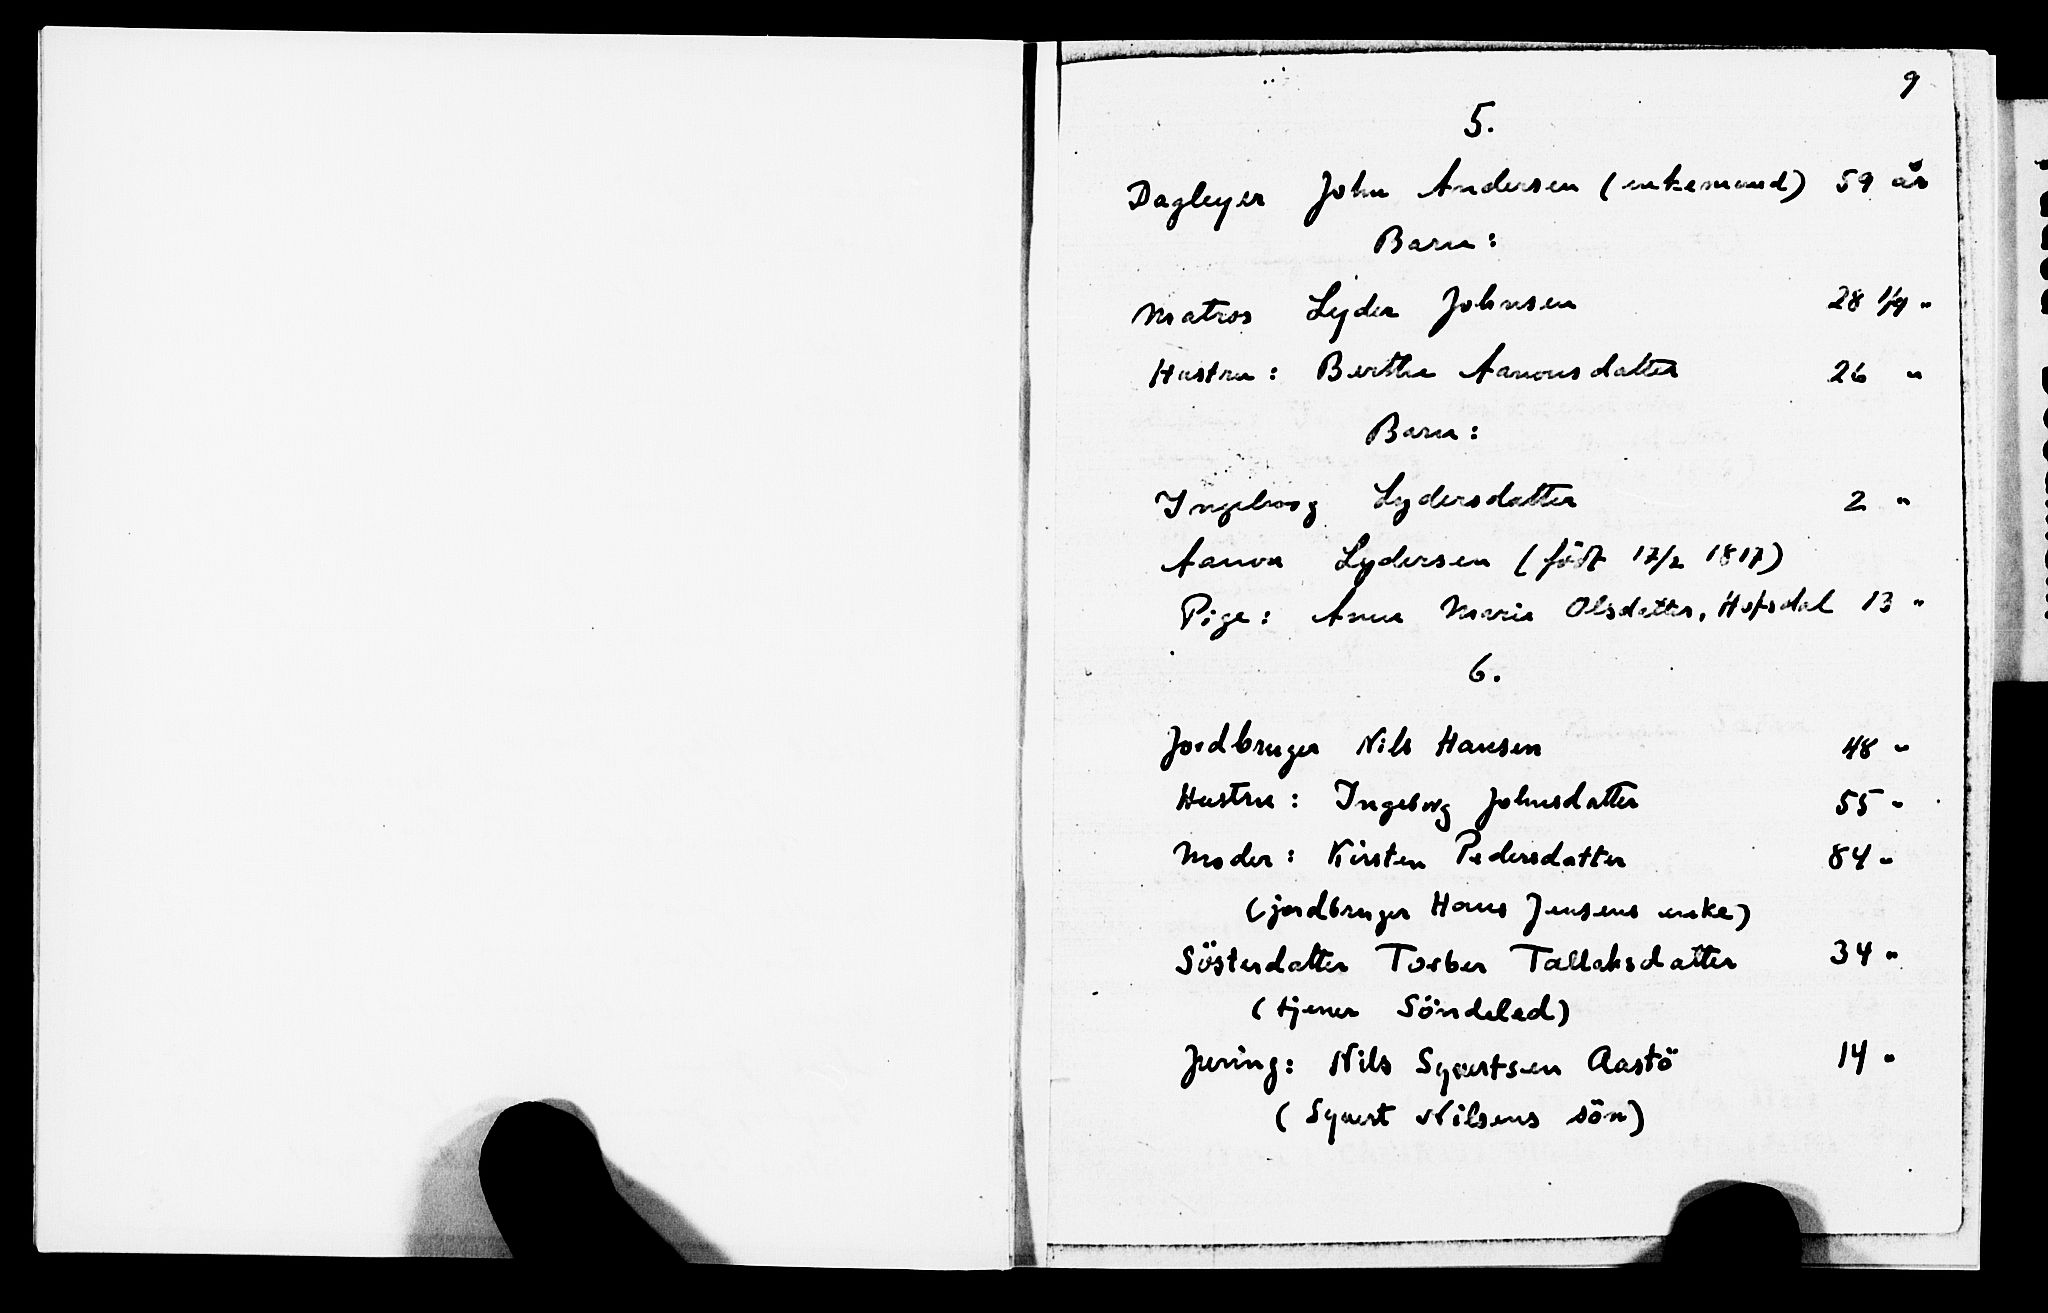 9
5.
Dagleyer John Andersen (enkemand) 59 år
Barn:
Matros Lyder Johnsen 28 1/9 "
Hustru: Berthe Aanonsdatter 26 "
Barn:
Ingeborg Lydersdatter 2 "
Aanon Lydersen (födt 17/2 1817)
Pige: Anna Maria Olsdatter, Hofsdal 13 "
6.
Jordbruger Nils Hansen 48 "
Hustru: Ingeborg Johnsdatter 55 "
Moder: Kirsten Pedersdatter 84 "
(jordbruger Hans Jensens enke)
Sösterdatter Torber Tallaksdatter 34 "
(tjener Söndeled)
Jüring: Nils Syvertsen Aastö 14 "
(Syvert Nilsens sön)